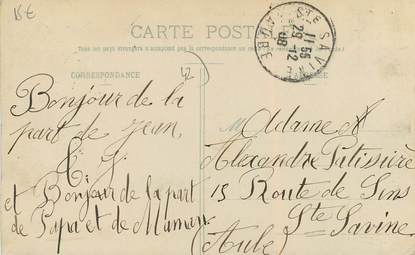 15 €
CARTE POSTALE
Tous les pays étrangers n'acceptent pas la correspondance
CORRESPONDANCE
42
STE SAVINE
11 55
29-12
08
AUBE
Bonjour de la
part de Jean,
et Bonjour de la part
de Papa et de Maman
Madame
Alexandre Patissière
15 Route de Sens
Ste Savine
(Aube)